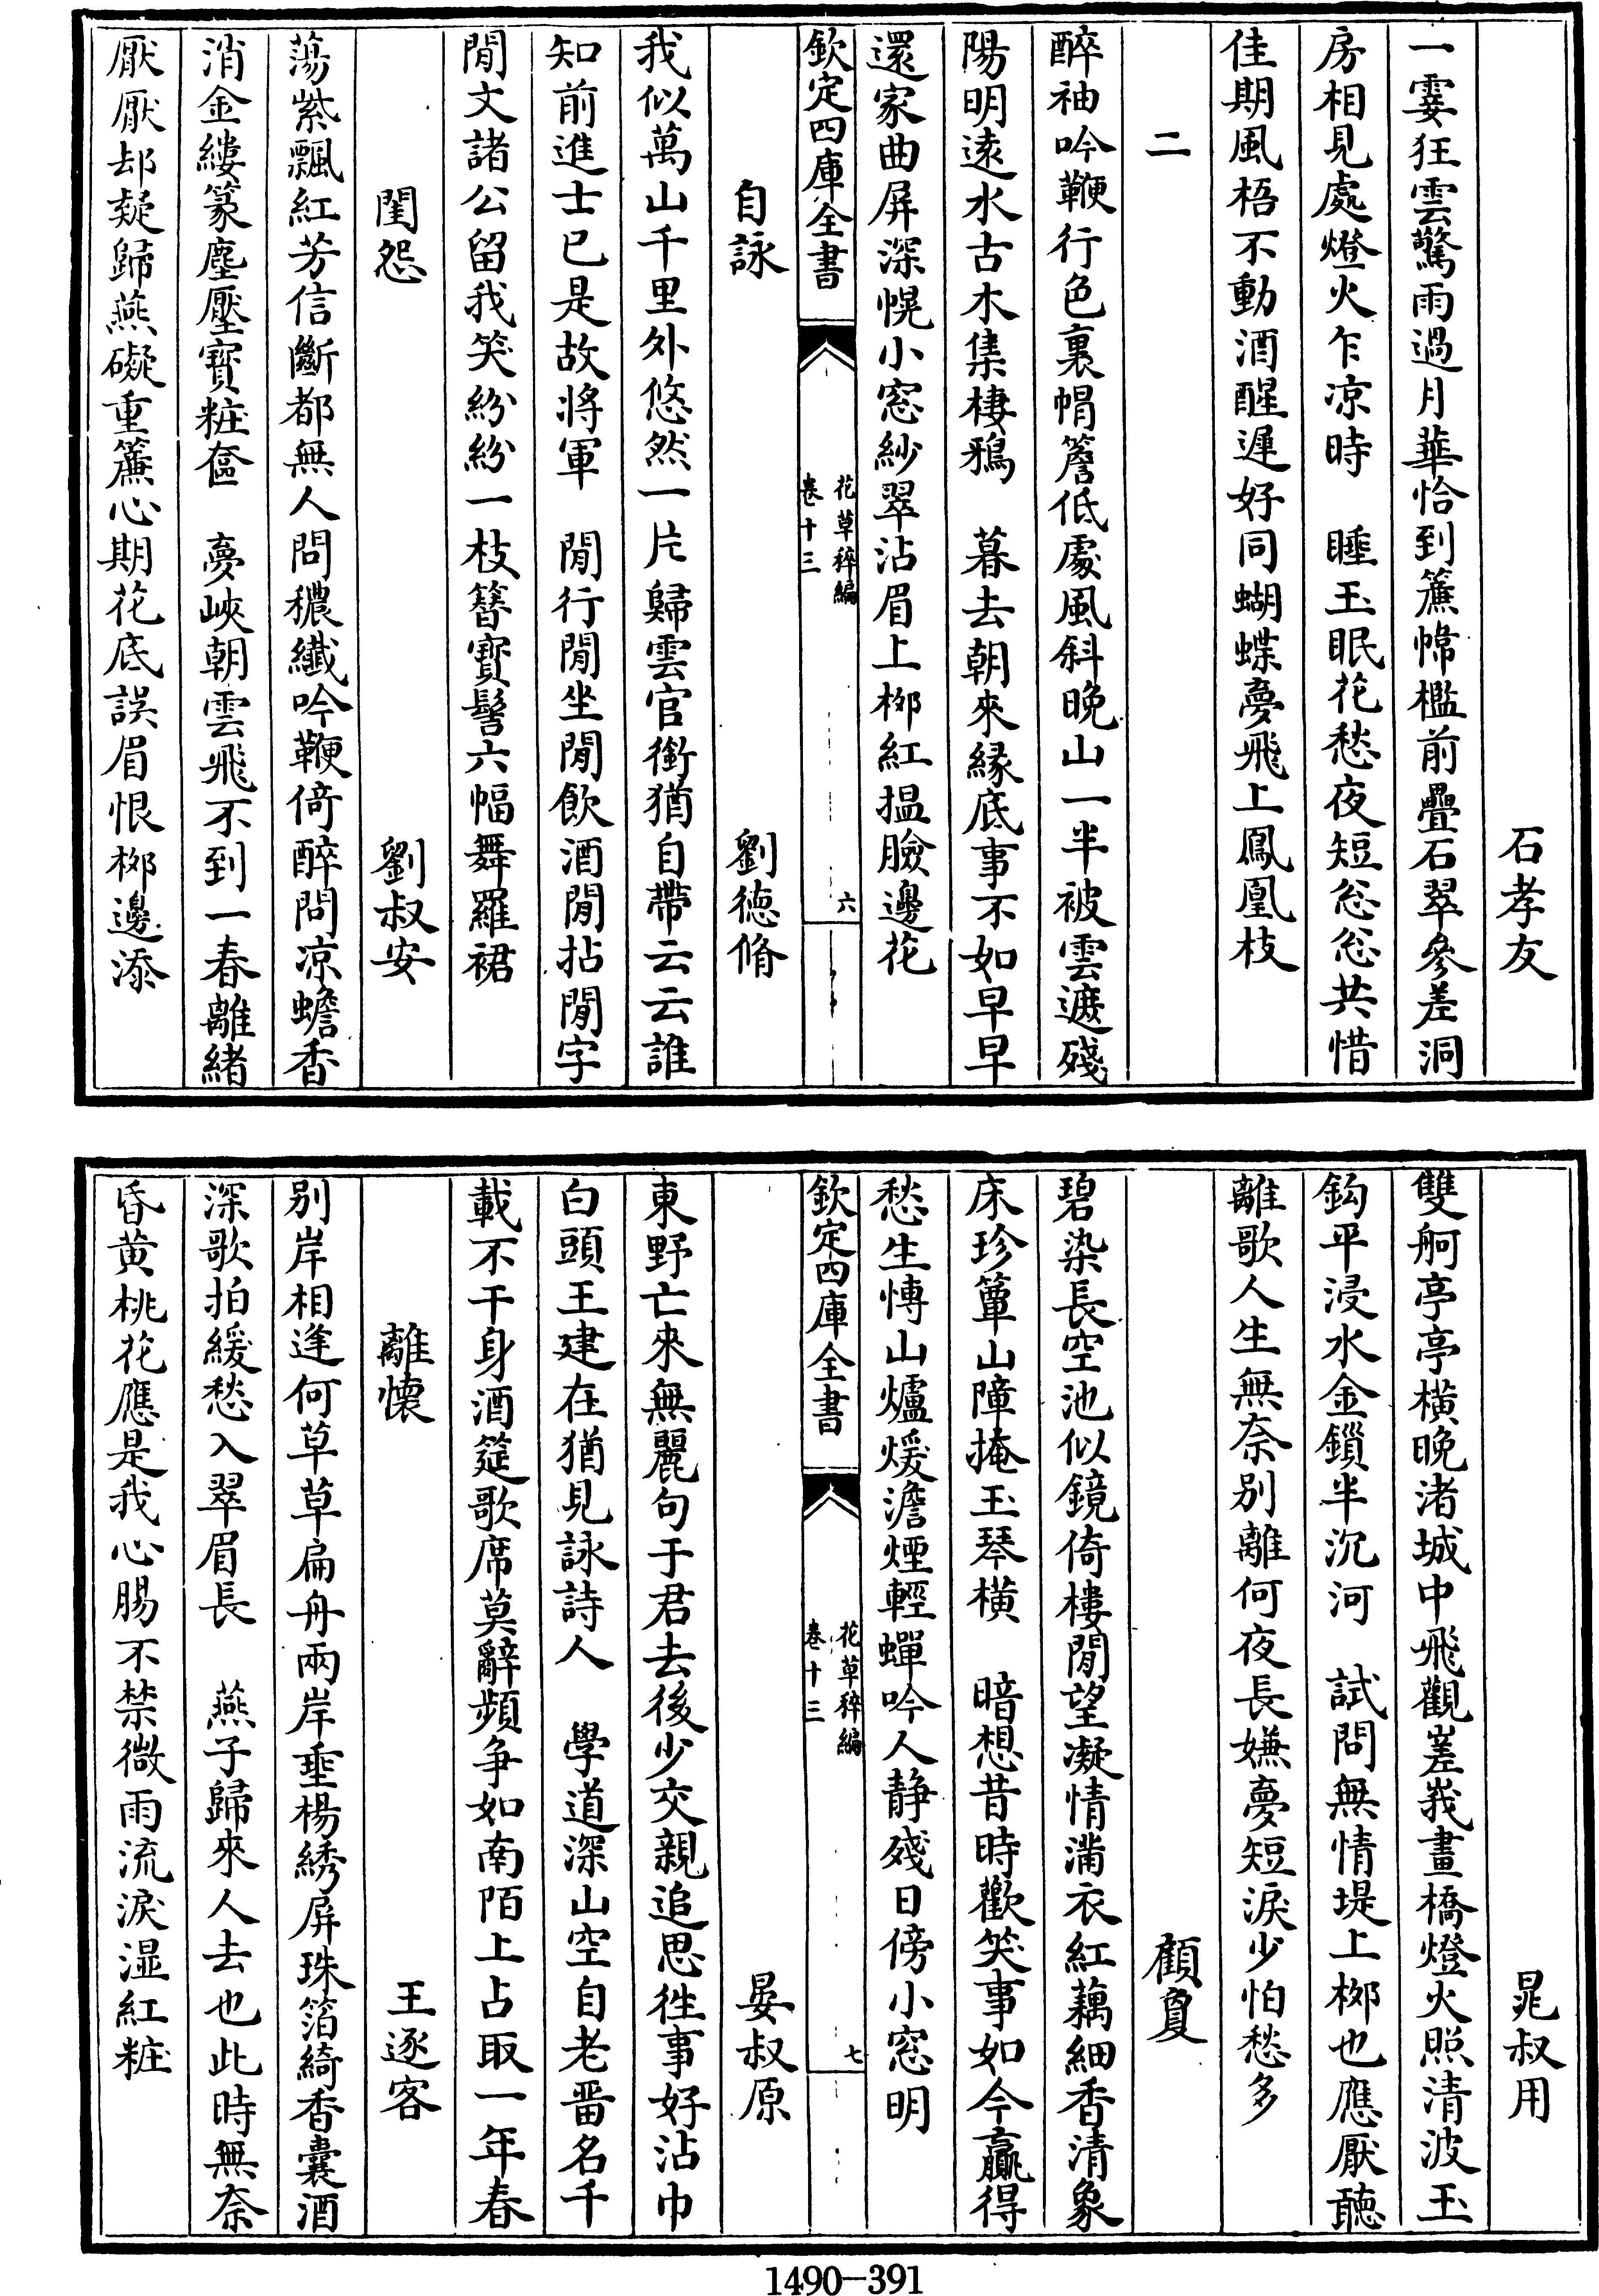 石孝友
一霎狂雲驚雨過月華恰到簾幃檻前疊石翠參差洞
房相見處燈火乍凉時　睡玉眠花愁夜短忩忩共惜
佳期風梧不動酒醒遲好同蝴蝶夢飛上鳳凰枝
二
醉袖吟鞭行色裏帽簷低處風斜晚山一半被雲遮殘
陽明逺水古木集棲鴉　暮去朝來縁底事不如早早
還家曲屏深幌小窓紗翠沾眉上栁紅揾臉邊花
欽定四庫全書
花草稡編
卷十三
六
自詠　劉德脩
我似萬山千里外悠然一片歸雲官銜猶自帶云云誰
知前進士已是故將軍　閒行閒坐閒飲酒閒拈閒字
閒文諸公留我笑紛紛一枝簪寳髻六幅舞羅裙
閨怨　劉叔安
蕩紫飄紅芳信斷都無人問穠纖吟鞭倚醉問凉蟾香
消金縷篆塵壓寳粧奩　夣峽朝雲飛不到一春離緒
厭厭却疑歸燕礙重簾心期花底誤眉恨栁邊添
晁叔用
雙舸亭亭横晚渚城中飛觀嵳峩畫橋燈火照清波玉
鈎平浸水金鎖半沉河　試問無情堤上栁也應厭聽
離歌人生無奈别離何夜長嫌夢短淚少怕愁多
顧敻
碧染長空池似鏡倚樓閒望凝情滿衣紅藕細香清象
床珍簟山障掩玉琴横　暗想昔時歡笑事如今贏得
愁生博山爐煖澹煙輕蟬吟人静殘日傍小窓明
欽定四庫全書
花草稡編
卷十三
七
晏叔原
東野亡來無麗句于君去後少交親追思徃事好沾巾
白頭王建在猶見詠詩人　學道深山空自老畱名千
載不干身酒筵歌席莫辭頻争如南陌上占取一年春
離懷　王逐客
别岸相逢何草草扁舟兩岸垂楊綉屏珠箔綺香囊酒
深歌拍緩愁入翠眉長　燕子歸來人去也此時無奈
昏黄桃花應是我心腸不禁微雨流淚湿紅粧
1490-391